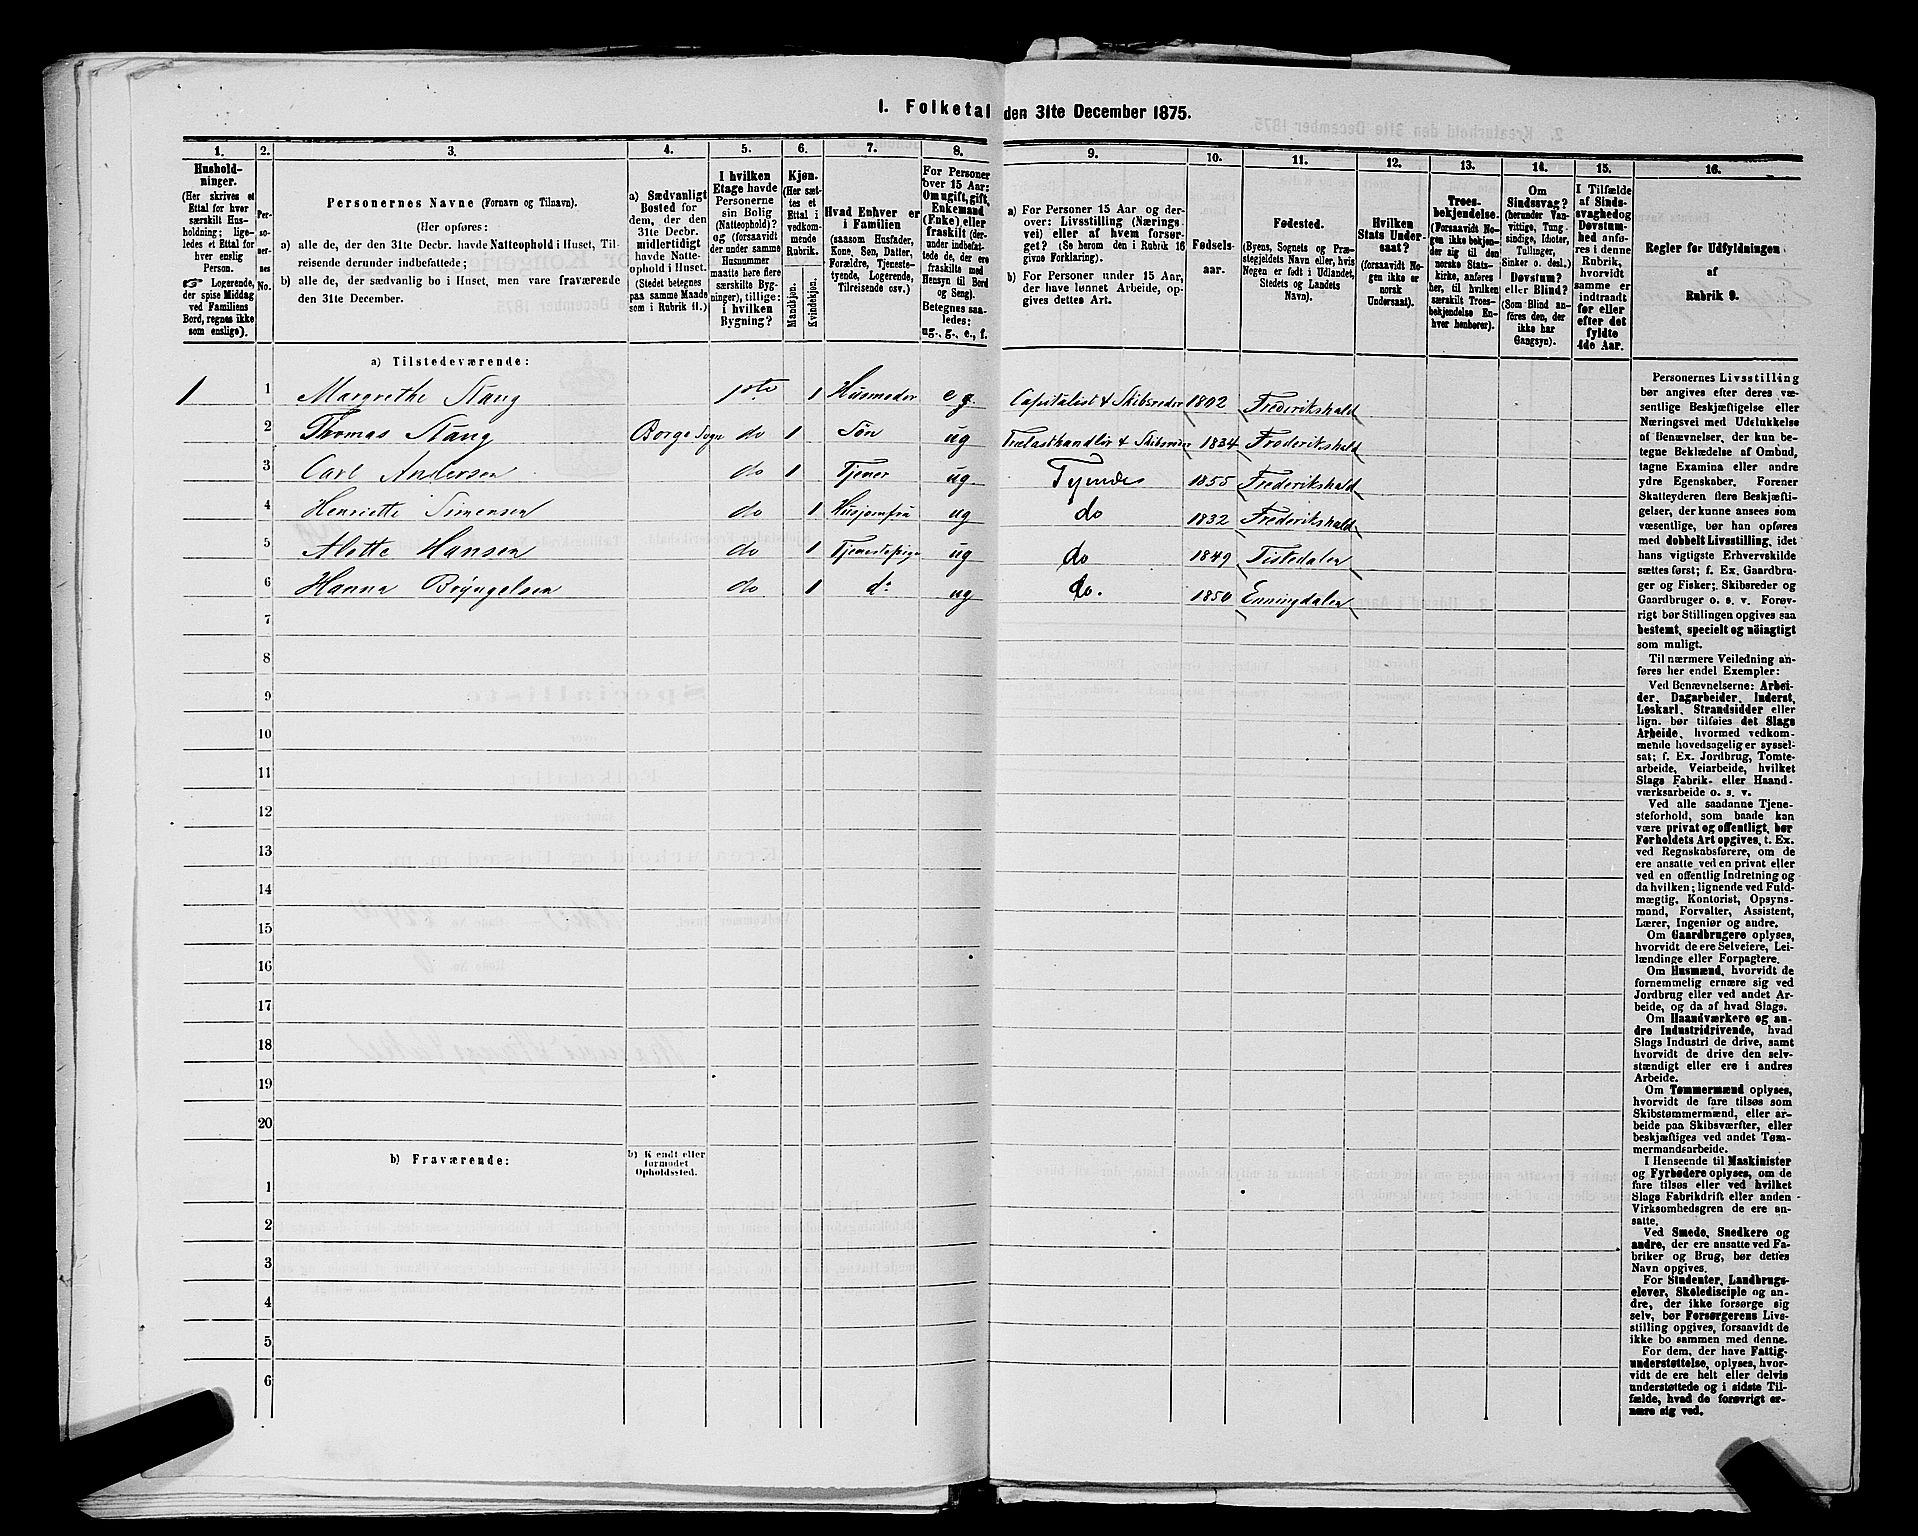 1. Folketal den 31te December 1875.
1. 2. 3. 4. 5. 6. 7. 8. 9. 10. 11. 12. 13. 14. 15. 16.
Hushold-
ninger.
(Her skrives et
Ettal for hver
særskilt Hus-
holdning; lige-
ledes et Ettal for
hver enslig
Person.
☞ Logerende,
der spise Middag
ved Familiens
Bord, regnes ikke
som enslige).
Per-
so-
ner-
nes
No.
Personernes Navne (Fornavn og Tilnavn).
(Her opføres:
a) alle de, der den 31te Decbr. havde Natteophold i Huset, Til-
reisende derunder indbefattede;
b) alle de, der sædvanlig bo i Huset, men vare fraværende
den 31te December.
a) Sædvanligt
Bosted for
dem, der den
31te Decbr.
midlertidigt
havde Natte-
ophold i Huset.
(Stedet betegnes
paa samme Maade
som i Rubrik 11.)
I hvilken
Etage havde
Personerne
sin Bolig
(Natteophold)?
og (forsaavidt
der under samme
Husnummer
maatte høre flere
særskilte Byg-
ninger), tillige:
i hvilken
Bygning?
Kjøn.
(Her sæt-
tes et
Ettal i
vedkom-
mende
Rubrik.
Mandkjøn.
Kvindekjøn.
Hvad Enhver er
i Familien
(saasom Husfader,
Kone, Søn, Datter,
Forældre, Tjeneste-
tyende, Logerende,
Tilreisende osv.)
For Personer
over 15 Aar:
Om ugift, gift,
Enkemand
(Enke) eller
fraskilt (der-
under indbefat-
tede de, der ere
fraskilte med
Hensyn til Bord
og Seng).
Betegnes saa-
ledes:
ug., g., e., f.
a) For Personer 15 Aar og der-
over: Livsstilling (Nærings
vei) eller af hvem forsør-
get? (Se herom den i Rubrik 16
givne Forklaring).
b) For Personer under 15 Aar,
der have lønnet Arbeide, op-
gives dettes Art.
Fødsels-
aar.
Fødested.
(Byens, Sognets og Præ-
stegjeldets Navn eller, hvis
Nogen er født i Udlandet,
Stedets og Landets
Navn).
Hvilken
Stats Under-
saat?
(forsaavidt No-
gen ikke er
norsk
Undersaat).
Troes-
bekjendelse.
(Forsaavidt No-
gen ikke bekjen-
der sig til den
norske Stats-
kirke, anføres
her, til hvilken
særskilt Troes-
bekjendelse En-
hver henhører).
Om
Sindssvag?
(herunder Van-
vittige, Tung-
sindige, Idioter,
Tullinger,
Sinker o. desl.)
Døvstum?
eller Blind?
(Som Blind an-
føres den, der
ikke har
Gangsyn).
I Tilfælde
af Sinds-
svaghed og
Døvstum-
hed anfø-
res i denne
Rubrik,
hvorvidt
samme er
indtraadt
før eller
efter det
fyldte
4de Aar.
Regler for Udfyldningen
af
Rubrik 9.
a) Tilstedeværende:
1 1 Margrethe Stang 1ste 1 Husmoder e g. Capitalist & Skibsreder 1802 Frederikshald
2 Thomas Stang Borge Sogn do 1 Søn ug Trælasthandler & Skibsreder 1834 Frederikshald
3 Carl Andersen do 1 Tjener ug Tyende 1855 Frederikshald
4 Henriette Simensen do 1 Husjomfru ug do 1832 Frederikshald
5 Alette Hansen do 1 Tjenestepige ug do 1849 Tistedalen
6 Hanna Bøyngelsen do 1 do ug do. 1850 Enningdalen
7
8
9
10
11
12
13
14
15
16
17
18
19
20
b) Fraværende:
b) Kjendt eller
formodet
Opholdssted.
1
2
3
4
5
6
Personernes Livsstilling
bør angives efter deres væ-
sentlige Beskjæftigelse eller
Næringsvei med Udelukkelse
af Benævnelser, der kun be-
tegne Beklædelse af Ombud,
tagne Examina eller andre
ydre Egenskaber. Forener
Skatteyderen flere Beskjæfti-
gelser, der kunne ansees som
væsentlige, bør han opføres
med dobbelt Livsstilling, idet
hans vigtigste Erhvervskilde
sættes først; f. Ex. Gaardbru-
ger og Fisker; Skibsreder og
Gaardbruger o. s. v. Forøv-
rigt bør Stillingen opgives saa
bestemt, specielt og nøiagtigt
som muligt.
Til nærmere Veiledning an-
føres her endel Exempler:
Ved Benævnelserne: Arbei-
der, Dagarbeider, Inderst,
Løskarl, Strandsidder eller
lign. bør tilføies det Slags
Arbeide, hvormed vedkom-
mende hovedsagelig er syssel-
sat; f. Ex. Jordbrug, Tomte-
arbeide, Veiarbeide, hvilket
Slags Fabrik- eller Haand-
værksarbeide o. s. v.
Ved alle saadanne Tjene-
steforhold, som baade kan
være privat og offentligt, bør
Forholdets Art opgives, t. Ex.
ved Regnskabsførere, om de
ere ansatte ved en privat eller
ved en offentlig Indretning og
da hvilken; lignende ved Fuld-
mægtig, Kontorist, Opsyns-
mand, Forvalter, Assistent,
Lærer, Ingeniør og andre.
Om Gaardbrugere oplyses,
hvorvidt de ere Selveiere, Lei-
lændinge eller Forpagtere.
Om Husmænd, hvorvidt de
fornemmelig ernære sig ved
Jordbrug eller ved andet Ar-
beide, og da af hvad Slags.
Om Haandværkere og an-
dre Industridrivende, hvad
Slags Industri de drive, samt
hvorvidt de drive den selv-
stændigt eller ere i andres
Arbeide.
Om Tømmermænd oplyses,
hvorvidt de fare tilsøs som
Skibstømmermænd, eller ar-
beide paa Skibsværfter, eller
beskjæftiges ved andet Tøm-
mermandsarbeide.
I Henseende til Maskinister
og Fyrbødere oplyses, om de
fare tilsøs eller ved hvilket
Slags Fabrikdrift eller anden
Virksomhedsgren de ere an-
satte.
Ved Smede, Snedkere og
andre, der ere ansatte ved Fa-
briker og Brug, bør dettes
Navn opgives.
For Studenter, Landbrugs-
elever, Skoledisciple og an-
dre, der ikke forsørge sig
selv, bør Forsørgerens Livs-
stilling opgives, forsaavidt de
ikke bo sammen med denne.
For dem, der have Fattig-
understøttelse, oplyses, hvor-
vidt de ere helt eller delvis
understøttede og i sidste Til-
fælde, hvad de forøvrigt er-
nære sig ved.